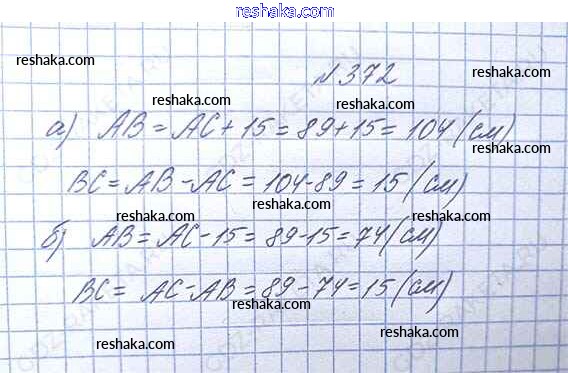 reshaka.com
№372
reshaka.com reshaka.com
reshaka.com
а) AB = AC + 15 = 89 + 15 = 104 (см)
reshaka.com reshaka.com
BC = AB - AC = 104 - 89 = 15 (см)
reshaka.com reshaka.com
б) AB = AC - 15 = 89 - 15 = 74 (см)
reshaka.com reshaka.com
BC = AC - AB = 89 - 74 = 15 (см)
reshaka.com
reshaka.com reshaka.com